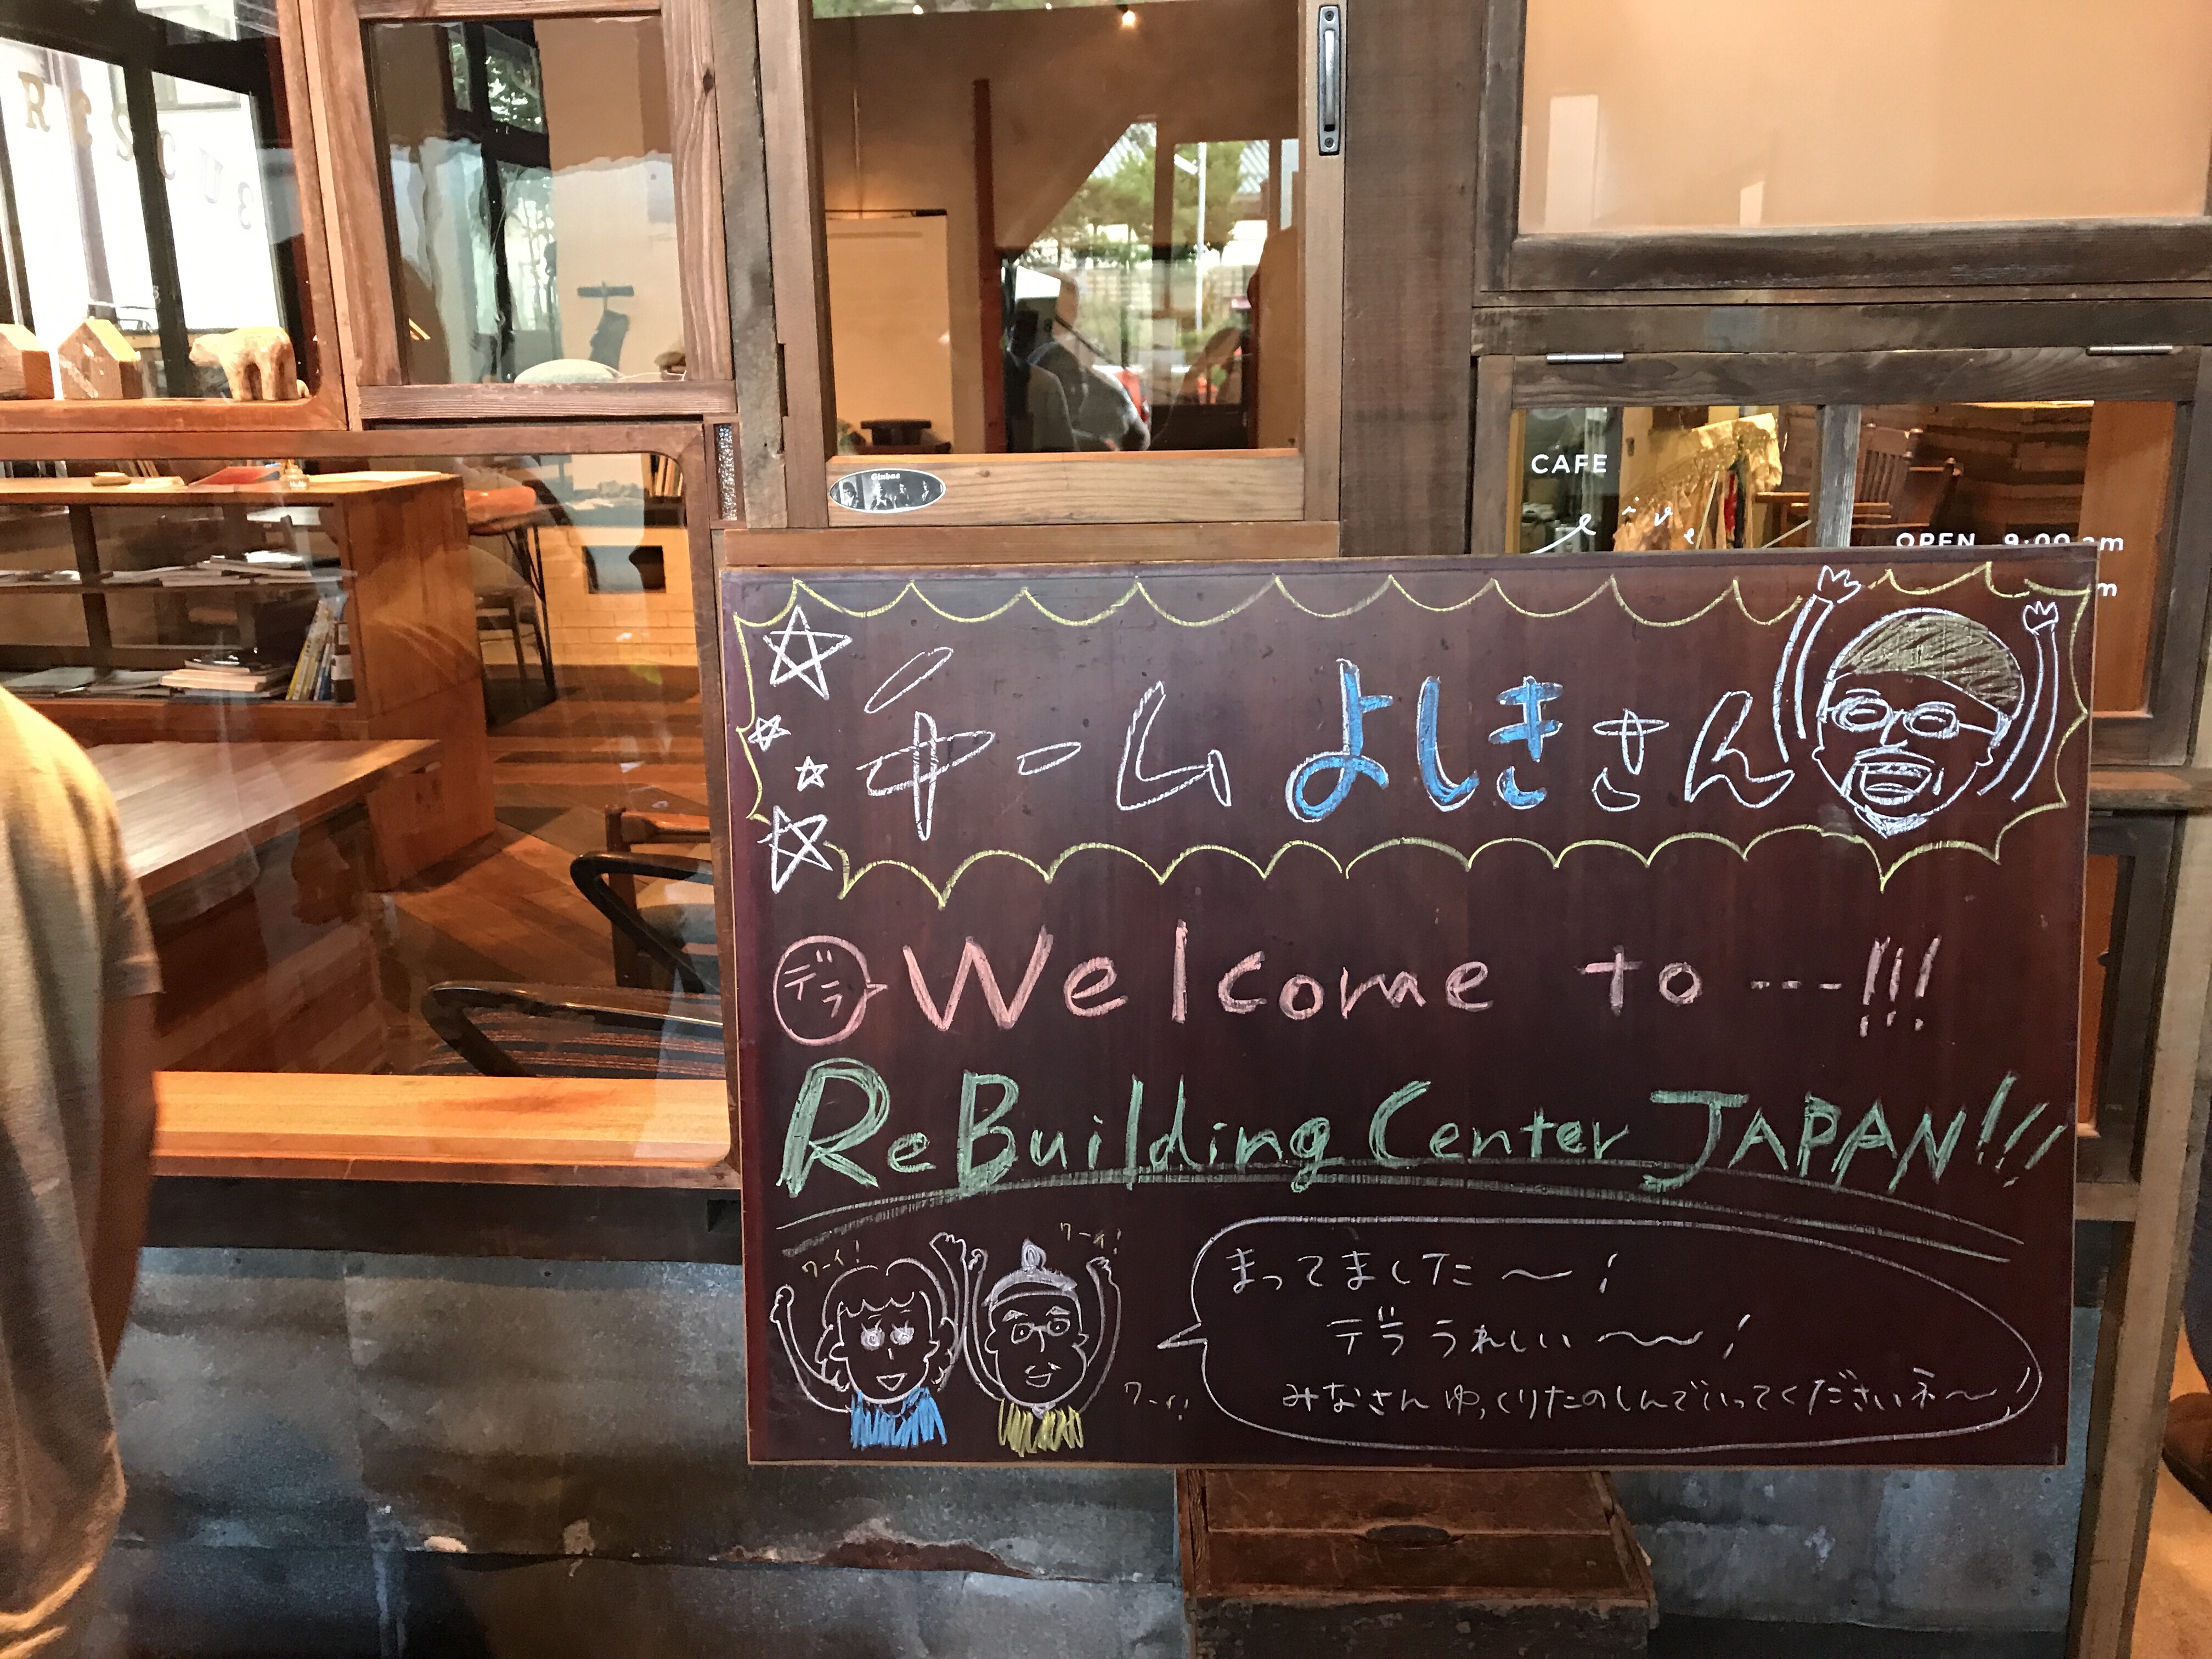 RESCUE
Ginbac
CAFE
live
OPEN 9:00 am
m
チームよしきさん
デラ Welcome to ---!!!
ReBuilding Center JAPAN!!!
ワーイ!
ワーイ!
ワーイ!
まってました〜!
デラうれしい〜〜!
みなさんゆっくりたのしんでいってくださいネ〜!